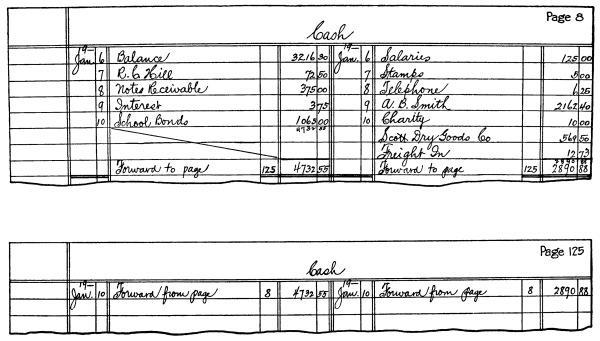 Page 8
Cash
19— 19—
Jan. 6 Balance 3216 30 Jan. 6 Salaries 125 00
7 R. C. Hill 72 50 7 Stamps 5 00
8 Notes Receivable 375 00 8 Telephone 6 25
9 Interest 3 75 9 A. B. Smith 2162 40
10 School Bonds 1065 00 10 Charity 10 00
4732 55 Scott Dry Goods Co 569 50
Freight In 12 73
2890 88
Forward to page 125 4732 55 Forward to page 125 2890 88
Page 125
Cash
19— 19—
Jan. 10 Forward from page 8 4732 55 Jan. 10 Forward from page 8 2890 88